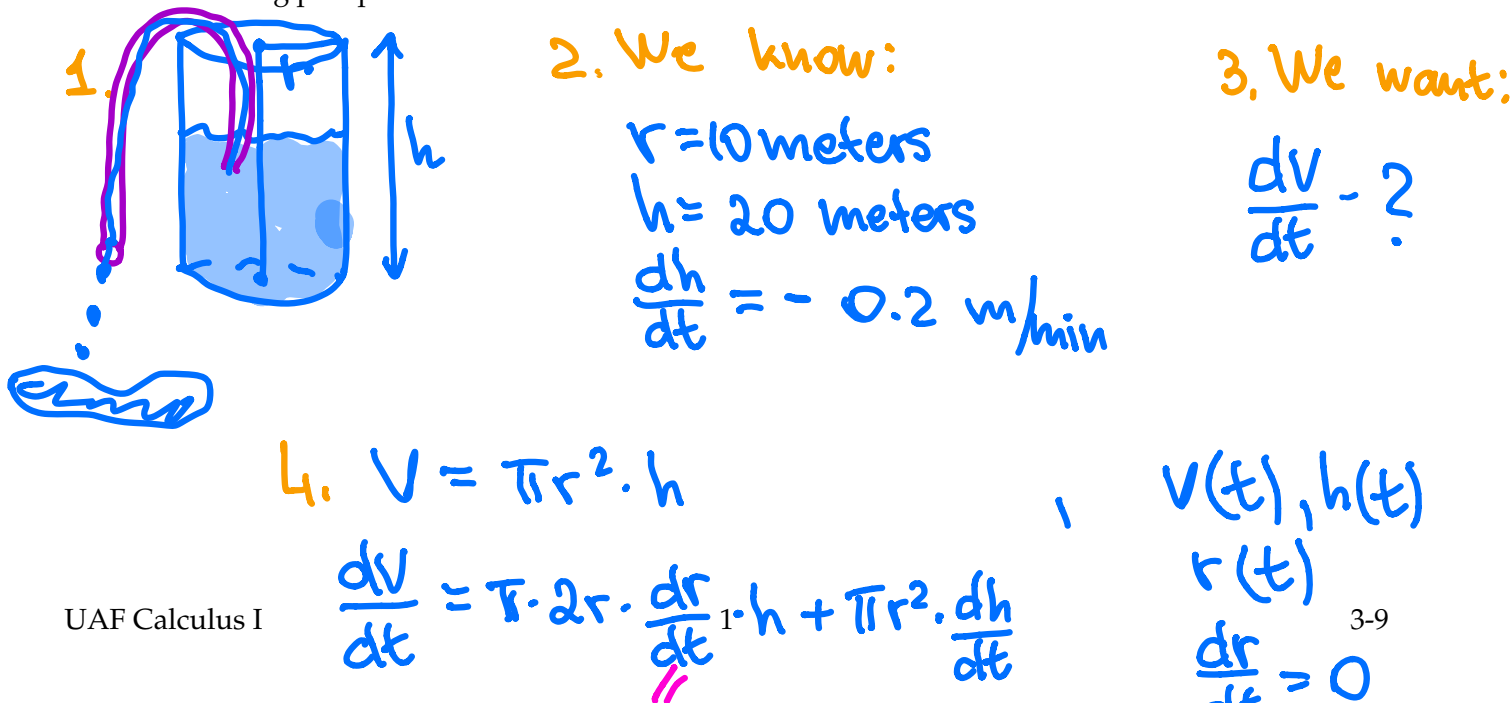 1.
r
h
2. We know:
r = 10 meters
h = 20 meters
dh/dt = - 0.2 m/min
3. We want:
dV/dt - ?
4. V = πr² · h
V(t), h(t)
r(t)
dV/dt = π · 2r · dr/dt · h + πr² · dh/dt
dr/dt = 0
UAF Calculus I 1 3-9